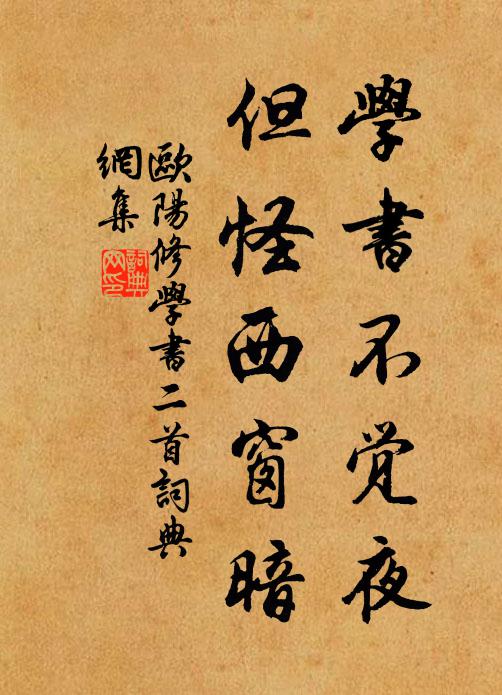 學書不觉夜
但怪西窗暗
歐陽修學書二首詞典
網集
詞典
网印